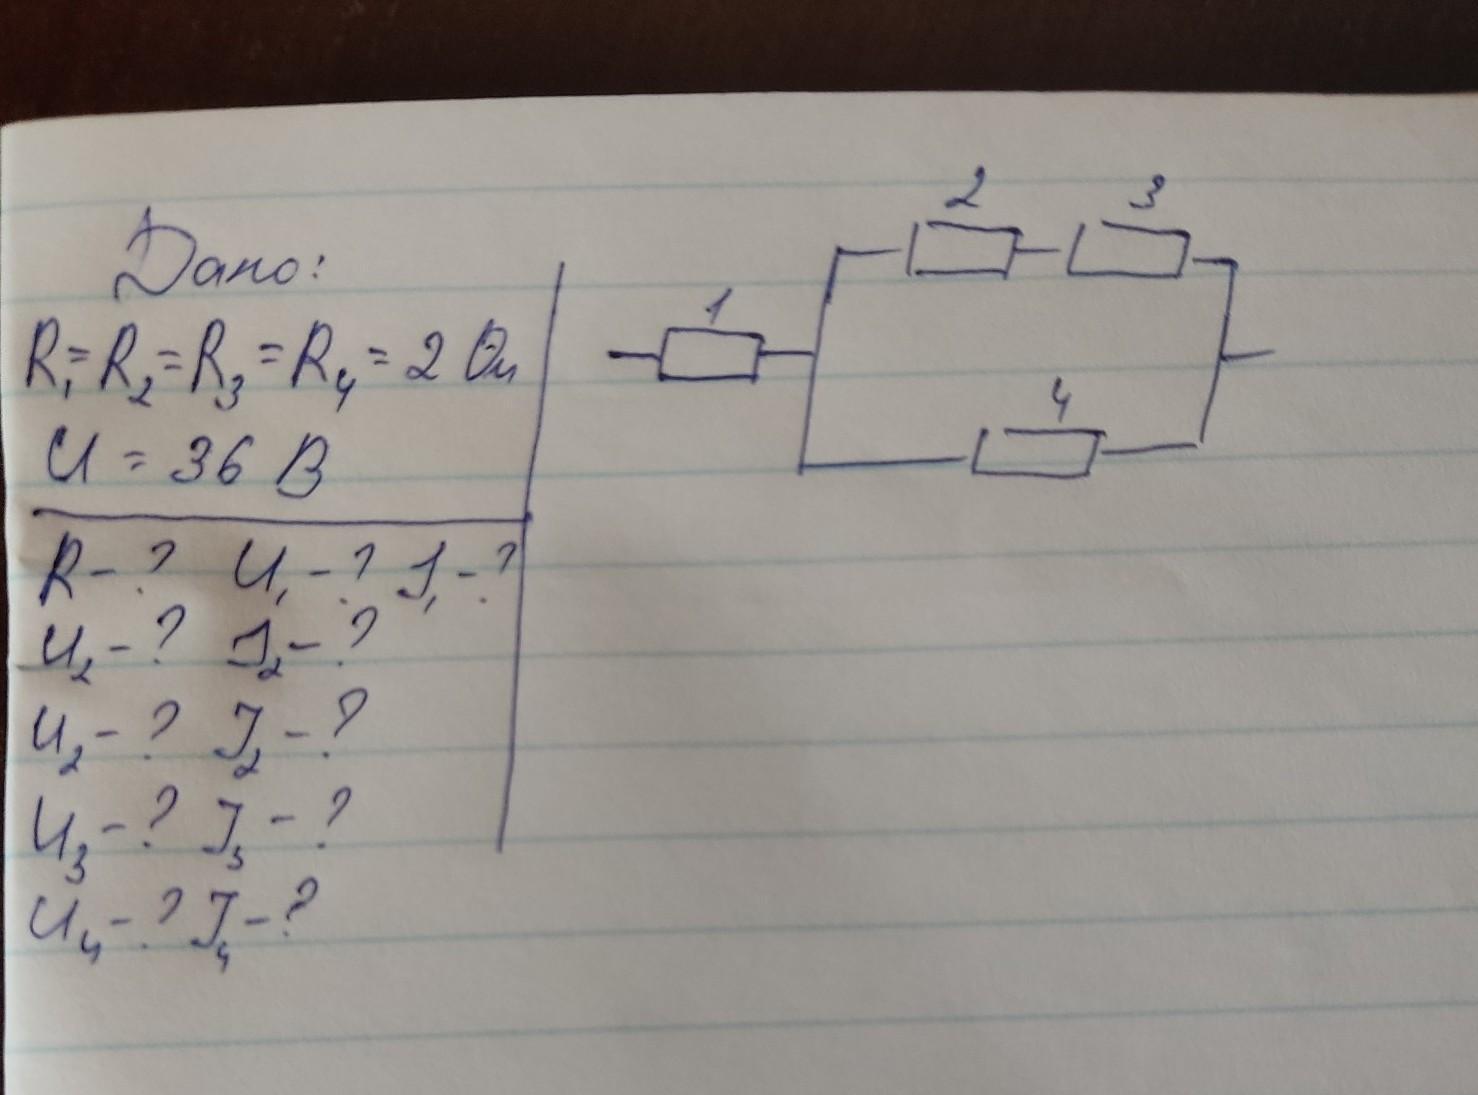 Дано:
R₁=R₂=R₃=R₄=2 Ом
U = 36 В
R-? U₁-? J₁-?
U₂-? J₂-?
U₂-? J₂-?
U₃-? J₃-?
U₄-? J₄-?
2 3
1
4